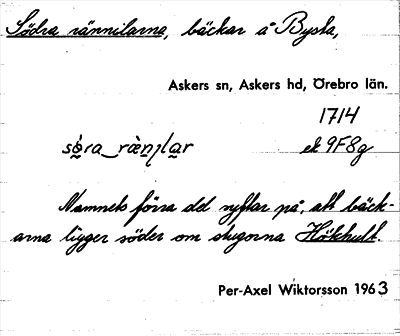 Södra rännilarna, bäckar å Bysta,
Askers sn, Askers hd, Örebro län.
1714
ek 9F8g
Namnets förra del syftar på, att bäck-
arna ligger söder om stugorna Hökhult.
Per-Axel Wiktorsson 1963